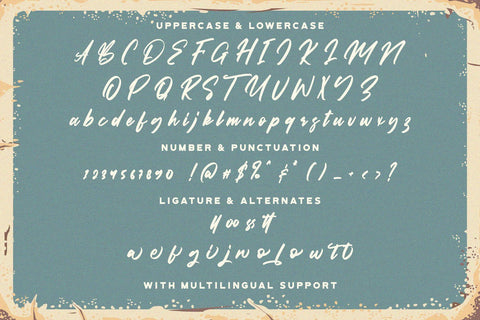 UPPERCASE & LOWERCASE
ABCDEFGHIJKLMN
OPQRSTUVWXYZ
abcdefghijklmnopqrstuvwxyz
NUMBER & PUNCTUATION
1234567890 !@#$%^&*()_+<>?
LIGATURE & ALTERNATES
WITH MULTILINGUAL SUPPORT